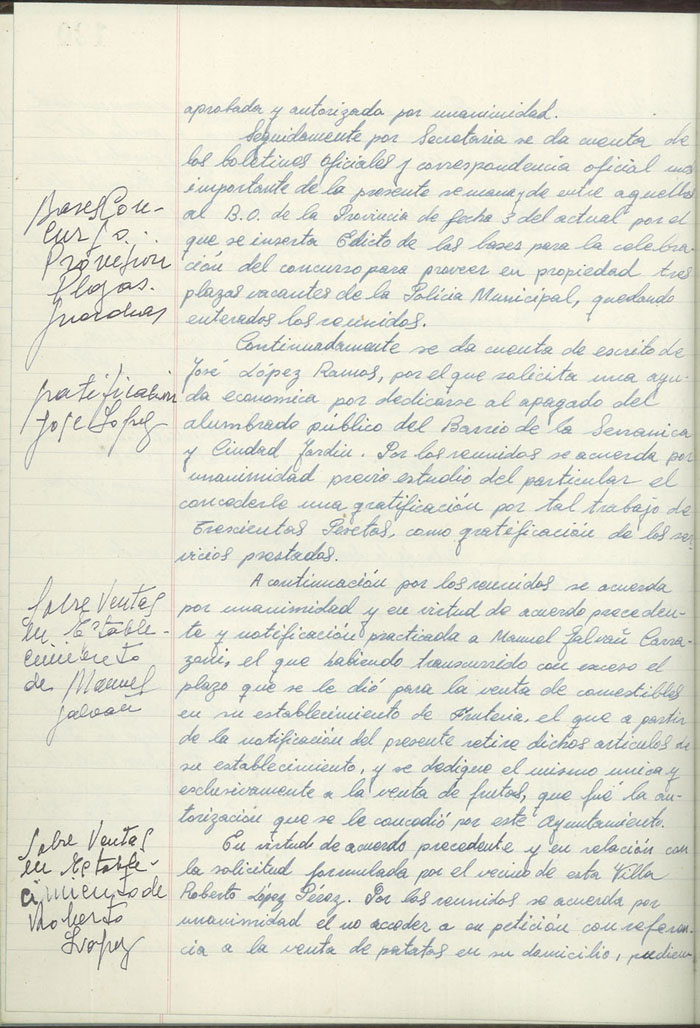 aprobada y autorizada por unanimidad.
Seguidamente por Secretaria se da cuenta de
los boletines oficiales y correspondencia oficial mas
importante de la presente semana y de entre aquellos
al B.O. de la Provincia de fecha 3 del actual por el
que se inserta Edicto de las bases para la celebra-
ción del concurso para proveer en propiedad tres
plazas vacantes de la Policia Municipal, quedando
enterados los reunidos.
Bases Con-
curso.
Provision
Plazas.
Guardias
Continuadamente se da cuenta de escrito de
José López Ramos, por el que solicita una ayu-
da economica por dedicarse al apagado del
alumbrado público del Barrio de la Serranica
y Ciudad Jardin. Por los reunidos se acuerda por
unanimidad previo estudio del particular el
concederle una gratificación por tal trabajo de
Trescientas Pesetas, como gratificación de los ser-
vicios prestados.
gratificación
Jose Lopez
A continuación por los reunidos se acuerda
por unanimidad y en virtud de acuerdo preceden-
te y notificación practicada a Manuel Galvañ Carra-
zoni, el que habiendo transcurrido con exceso el
plazo que se le dió para la venta de comestibles
en su establecimiento de Fruteria, el que a partir
de la notificación del presente retire dichos articulos de
su establecimiento, y se dedique el mismo unica y
exclusivamente a la venta de frutas, que fué la au-
torización que se le concedió por este Ayuntamiento.
Sobre Ventas
en Estable-
cimiento
de Manuel
Galvañ
En virtud de acuerdo precedente y en relación con
la solicitud formulada por el vecino de esta Villa
Roberto López Pérez. Por los reunidos se acuerda por
unanimidad el no acceder a su petición con referen-
cia a la venta de patatas en su domicilio, pudien-
Sobre Ventas
en Estable-
cimiento de
Roberto
Lopez